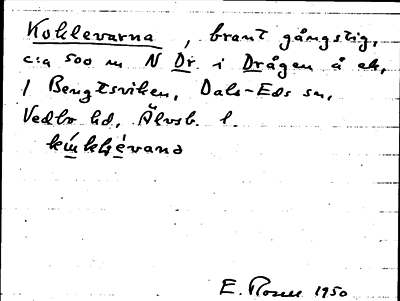 Kohlevarna, brant gångstig,
c:a 500 m N Dr. i Drågen å ek,
/ Bengtsviken, Dals-Eds sn,
Vedbo hd, Älvsb. l.
E. 1950